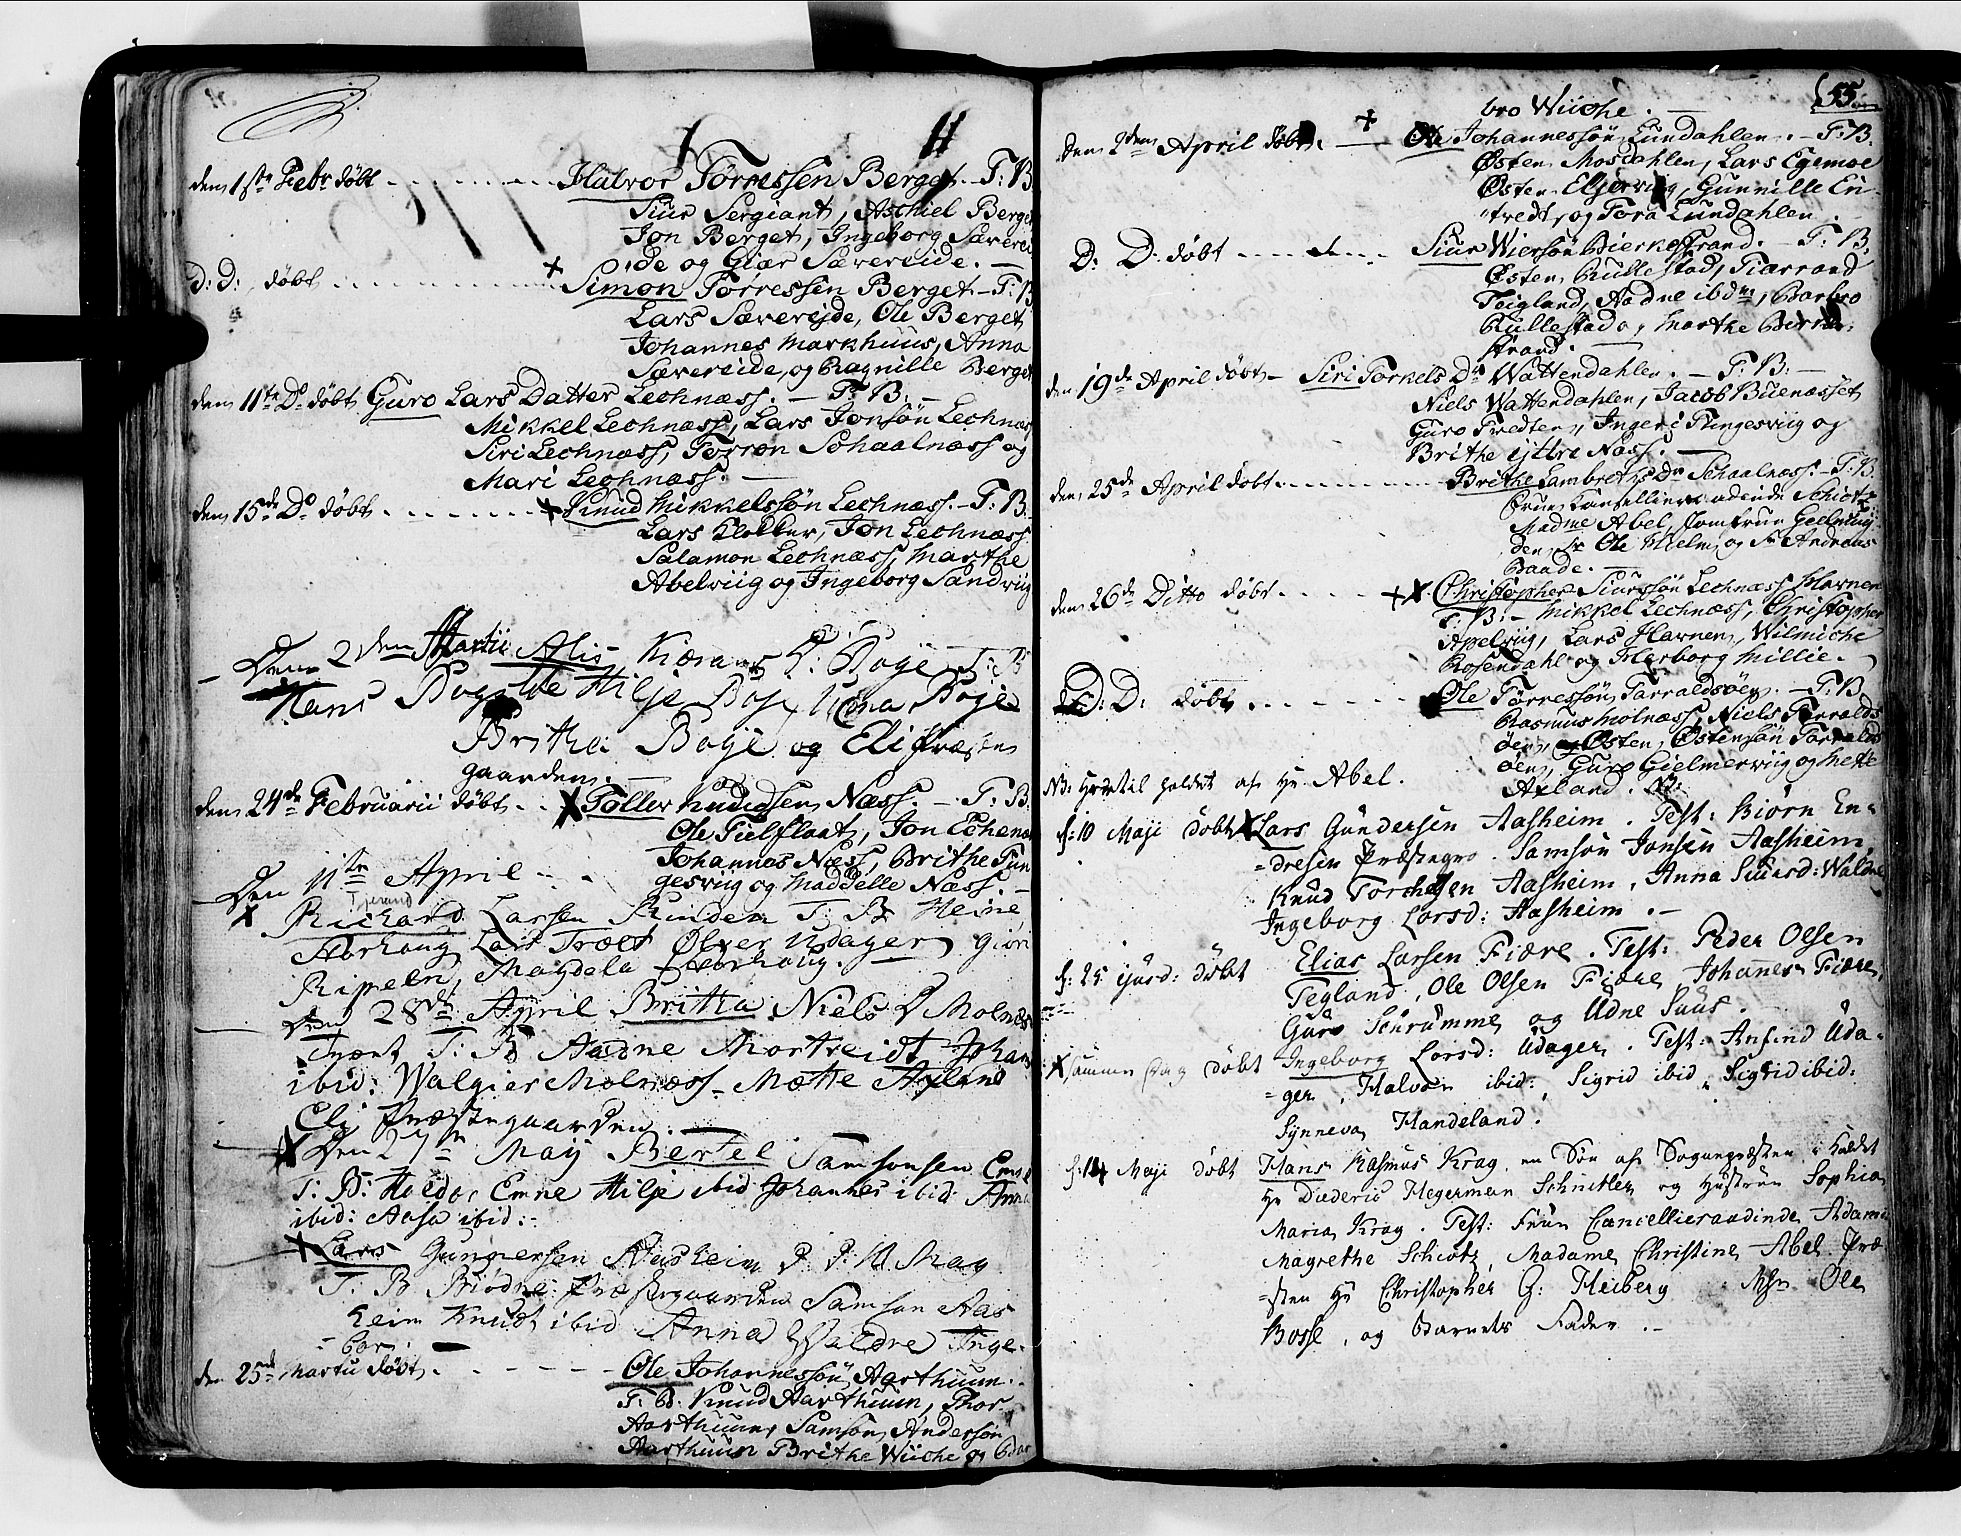 den 1ste Febr døbt Halvor Torressen Berget. T: B
Siur Sergiant, Aschiel Berget
Jon Berget, Ingeborg Særerei
de og Giær Særereide.
D: D: døbt Simon Torressen Berget - T: B
Lars Særereide, Ole Berget
Johannes Markhuus, Anna
Særereide, og Ragnille Berget
den 11te Do døbt Guro Lars Datter Lechnæss. - T: B. -
Mikkel Lechnæss, Lars Jonsøn Lechnæs
Siri Lechnæss, Torron Schaalnæss og
Mari Lechnæss.
den 15de Do døbt Knud Mikkelsøn Lechnæss. - T: B.
Lars Klokker, Jon Lechnæss
Salamon Lechnæss, Marthe
Abelviig og Ingeborg Sandviig
Den 2den Martii Alis D: Boije T: B
Hans Hilje Boje Boije
Brithe Boije og Eli Præste
gaarden.
den 24de Februarii døbt Toller Knudsen Næss. - T: B.
Ole Tielflaat, Jon Echenæs
Johannes Næss, Brithe Tun
gesviig og Maddelle Næss. -
Den 11te April
Richard Larsen Rinden T: B Heine
Aarhoug Lars Træet Olver Udager Giøri
Ripeln, Magdela Aarhoug.
Den 28de April Britta Niels D Molnæs
T: B Aadne Mortveidt Johan
ibid: Walgier Molnæss - Mætte Axland
Eli Præstegaarden.
Den 27de May Bertel Samsonsen Emne
T: B: Haldor Emne Hilje ibid Johannes ibid. Anna
ibid: Aasa ibid:-
Lars Gunnersen Aasheim D: 10 May
T. B Biødne Præstegaarden Samson Aas
heim Knudt ibid Anna Waldre Inge-
bor.
den 25de Martii døbt Ole Johannessøn Aarthuun.
T. B. Knud Aarthuun, Thor
Aarthuun, Samson Andersøn
Aarthuun Brithe Wiiche og Bar
55.
bro Wiiche.
Den 2den April døbt. Ole Johannessøn Lundahlen. - T: B.
Østen Mosdahlen, Lars Egemoe
Østen Eljerviig, Gunnille En
tredt, og Tora Lundahlen.
D: D: døbt Siur Wiersøn Bierkestrand. - T: B.
Østen Rullestad, Tiærrand
Teigland, Aadne ibdm, Barbro
Rullestad, Marthe Birke
strand.
den 19de April døbt - Siri Torkels Dr Wattendahlen. - T: B: -
Niels Wattendahlen, Jacob Buenæsset
Guro Tredten, Ingeri Tungesviig og
Brithe ijttre Næss.
den 25de April døbt Brithe Lambrets Dr Schaalnæss. - T: B
Frue Cancellieraadinde Schiøtz
Madme Abel, Jomfrue Gielmuij
den Sr Ole Hielm, og Sr Andreas
Baade.
den 26de Ditto døbt Christopher Siursøn Lechnæss Havnen
T: B: - Mikkel Lechnæss, Christopher
Apelviig, Lars Havnen, Wilmiche
Rosendahl og Herborg Millie.
D: D: døbt Ole Torressøn Tarraldsøen. - T: B
Rasmus Molnæss, Niels Tarralds
øen, Østen Østensøn Tarralds
øen, Guro Gielmerviig og Mette
Axland.
NB: Hertil holdet af Hr. Abel.
d: 10 Maji døbt Lars Gundersen Aasheim. Test: Biørn En=
=dresen Præstegrd. Samson Jonsen Aasheim,
Knud Torchelsen Aasheim, Anna Siursd: Waldre
Ingeborg Larsd: Aasheim. -
d: 25 ejusd: døbt Elias Larsen Fiære. Test: Peder Olsen
Tegland, Ole Olsen Fiære, Johannes Fiære,
Guro Schrumme og Udne Suus.
samme Dag døbt Ingeborg Larsd: Udager. Test: Anfind Uda=
=ger, Halvor ibid:, Sigrid ibid, Sigrid ibid:
Synneva Handeland.
d: 14 Maji døbt Hans Rasmus Krag, en Søn af Sognepræsten i Kaldet
Hr Diederic Hegerman Schnitler og Hustrue Sophia
Maria Krag. Test: Frue Cancellieraadinde Adami
Magrethe Schiøtz, Madame Christine Abel Præ=
=sten Hr Christopher G: Heiberg Msr Ole
Bosse, og Barnets Fader. -